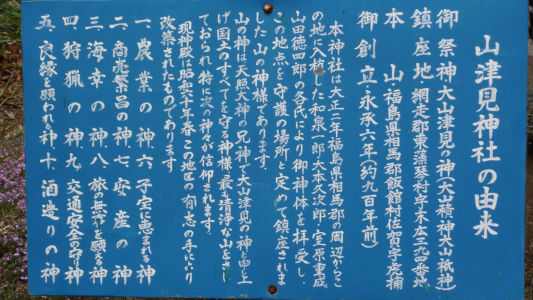 山津見神社の由来
御祭神 大山津見の神(大山積神 大山祇神)
鎮座地 網走郡東藻琴村字末広三四番地
本山 福島県相馬郡飯館村佐須字虎捕
御創立 永承六年(約九百年前)
本神社は大正二年福島県相馬郡の周辺からこ
の地に入植した和泉一郎、大本久次郎、室原重成
山田徳四郎の各氏により御神体を拝受し、
この地点を守護の場所と定めて鎮座されま
した山の神様であります。
山の神は天照大神の兄神で大山津見の神と申し上
げ国土のすべてを守る神様、最も清浄な山をさし
ておられ、特に次の神々が信仰されます。
現神殿は昭和六十年春この地区の有志の手により
改築されたものであります
一、農業の神 六、子宝に恵まれる神
二、商売繁昌の神 七、安産の神
三、海幸の神 八、旅の無事を願う神
四、狩猟の神 九、交通安全の守神
五、良縁を願われる神 十、酒造りの神